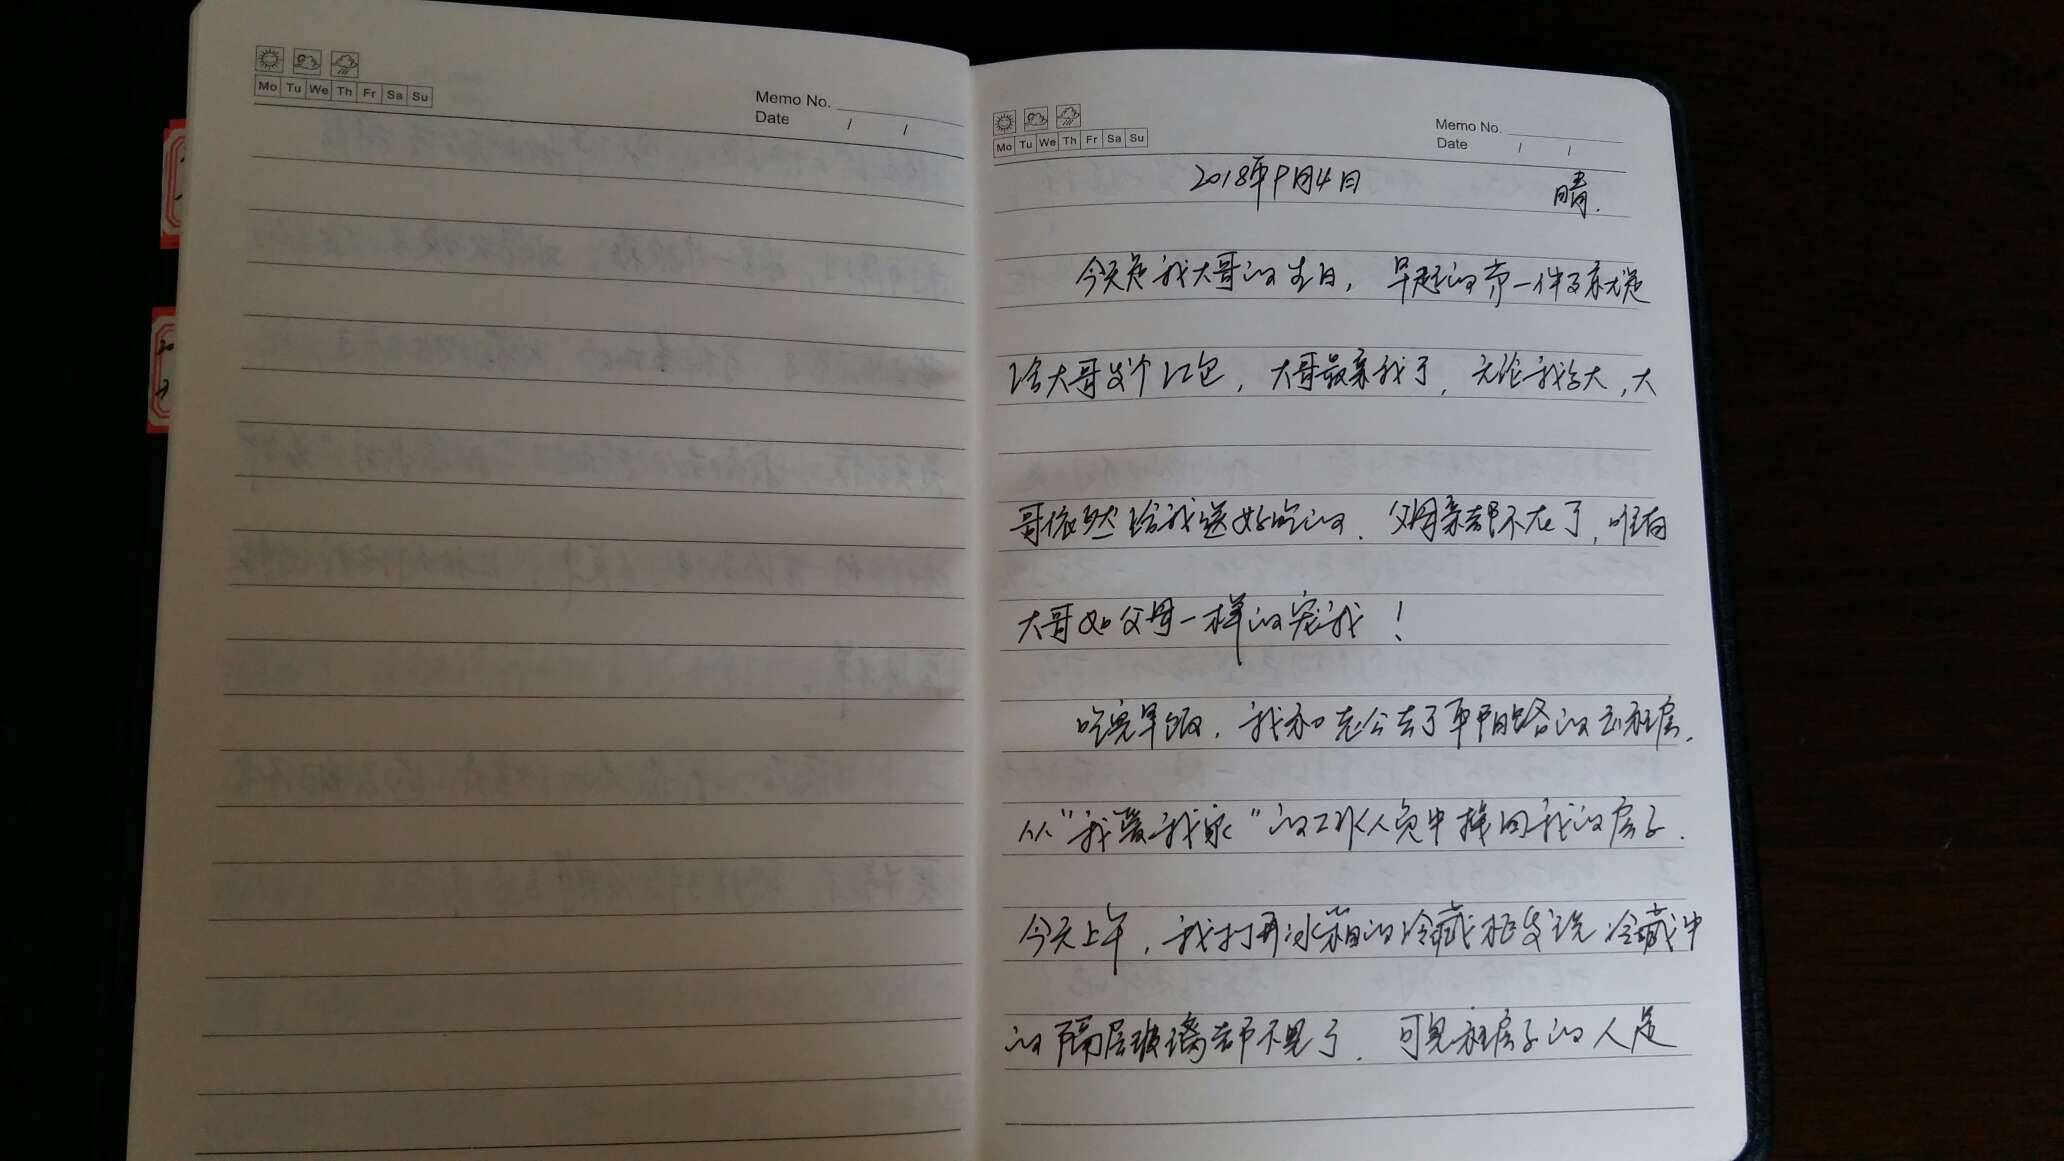 Mo Tu We Th Fr Sa Su
Memo No.
Date / /
Mo Tu We Th Fr Sa Su
Memo No.
Date / /
2018年9月4日 晴.
今天是我大哥的生日, 早起的第一件事就是
给大哥发个红包, 大哥最亲我了, 无论我多大, 大
哥依然给我送好吃的. 父母亲都不在了, 唯有
大哥如父母一样的宠我!
吃完早饭, 我和老公去了平阳路的出租房.
从"我爱我家"的工作人员中接回我的房子.
今天上午, 我打开冰箱的冷藏柜发现冷藏中
的隔层玻璃都不见了. 可见租房子的人是